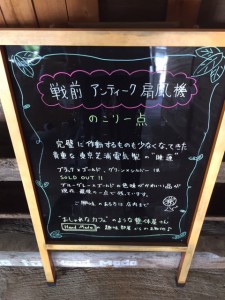 戦前 アンティーク扇風機
のこり一点
完璧に作動するものも少なくなってきた
貴重な東京芝浦電気製の
ブラック×ゴールド、グリーン×シルバー は
SOLD OUT !!
ブルーグレー×ゴールドの色味がかわいい品が
現在 最後の一点で残っています。
ご興味のある方は 店内まで
"おしゃれなカフェのような整体屋さん"
Hand Made